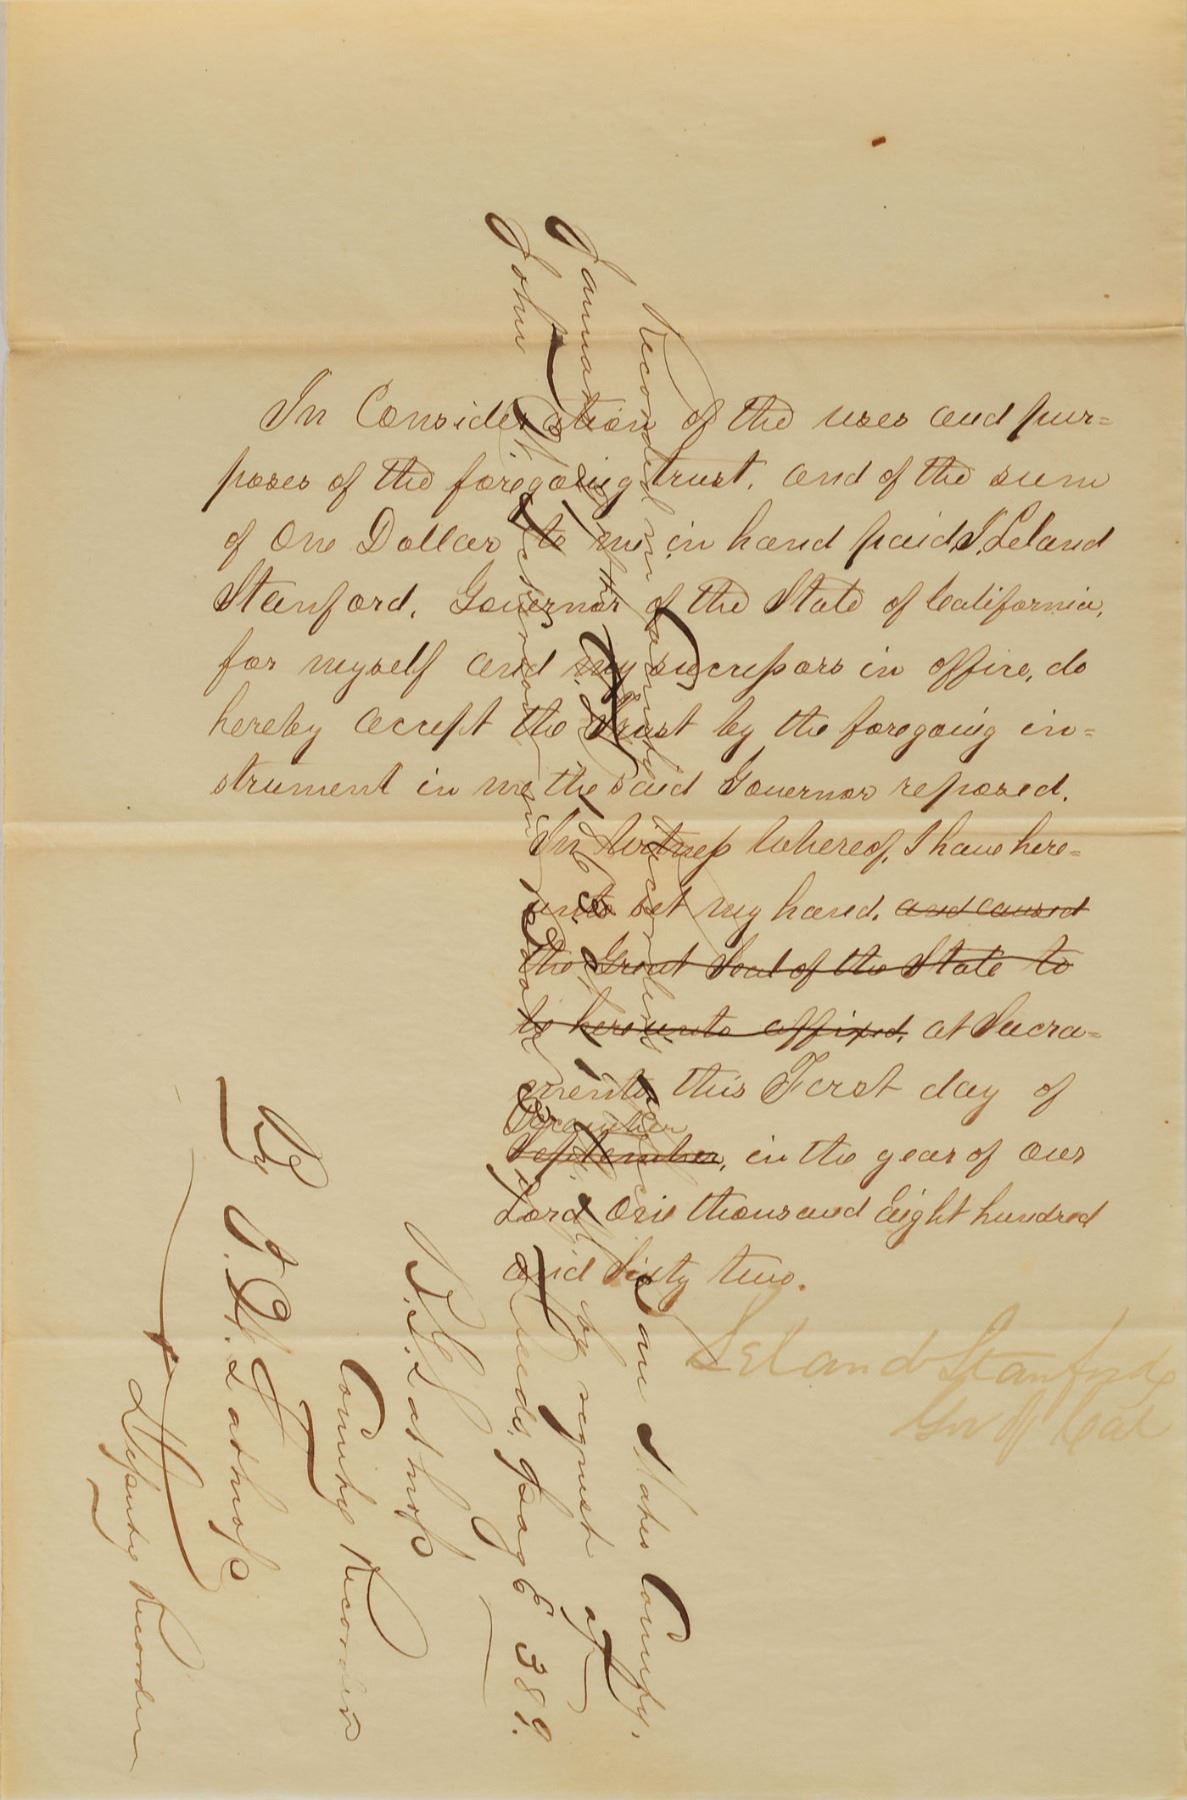 In Consideration of the uses and pur=
poses of the foregoing trust, and of the sum
of One Dollar to me in hand paid, I, Leland
Stanford, Governor of the State of California,
for myself and my successors in office, do
hereby accept the Trust by the foregoing in=
strument in me the said Governor reposed.
In Witness Whereof, I have here=
unto set my hand, and caused
the Great Seal of the State to
be hereunto affixed, at Sacra=
mento this First day of
December
September, in the year of our
Lord One thousand Eight hundred
and Sixty two.
Leland Stanford
Gov of Cal
Recorded in San Mateo County,
January at request of
John W. Deeds, page 389.
B. G. Lathrop
County Recorder
By Lathrop
Deputy Recorder